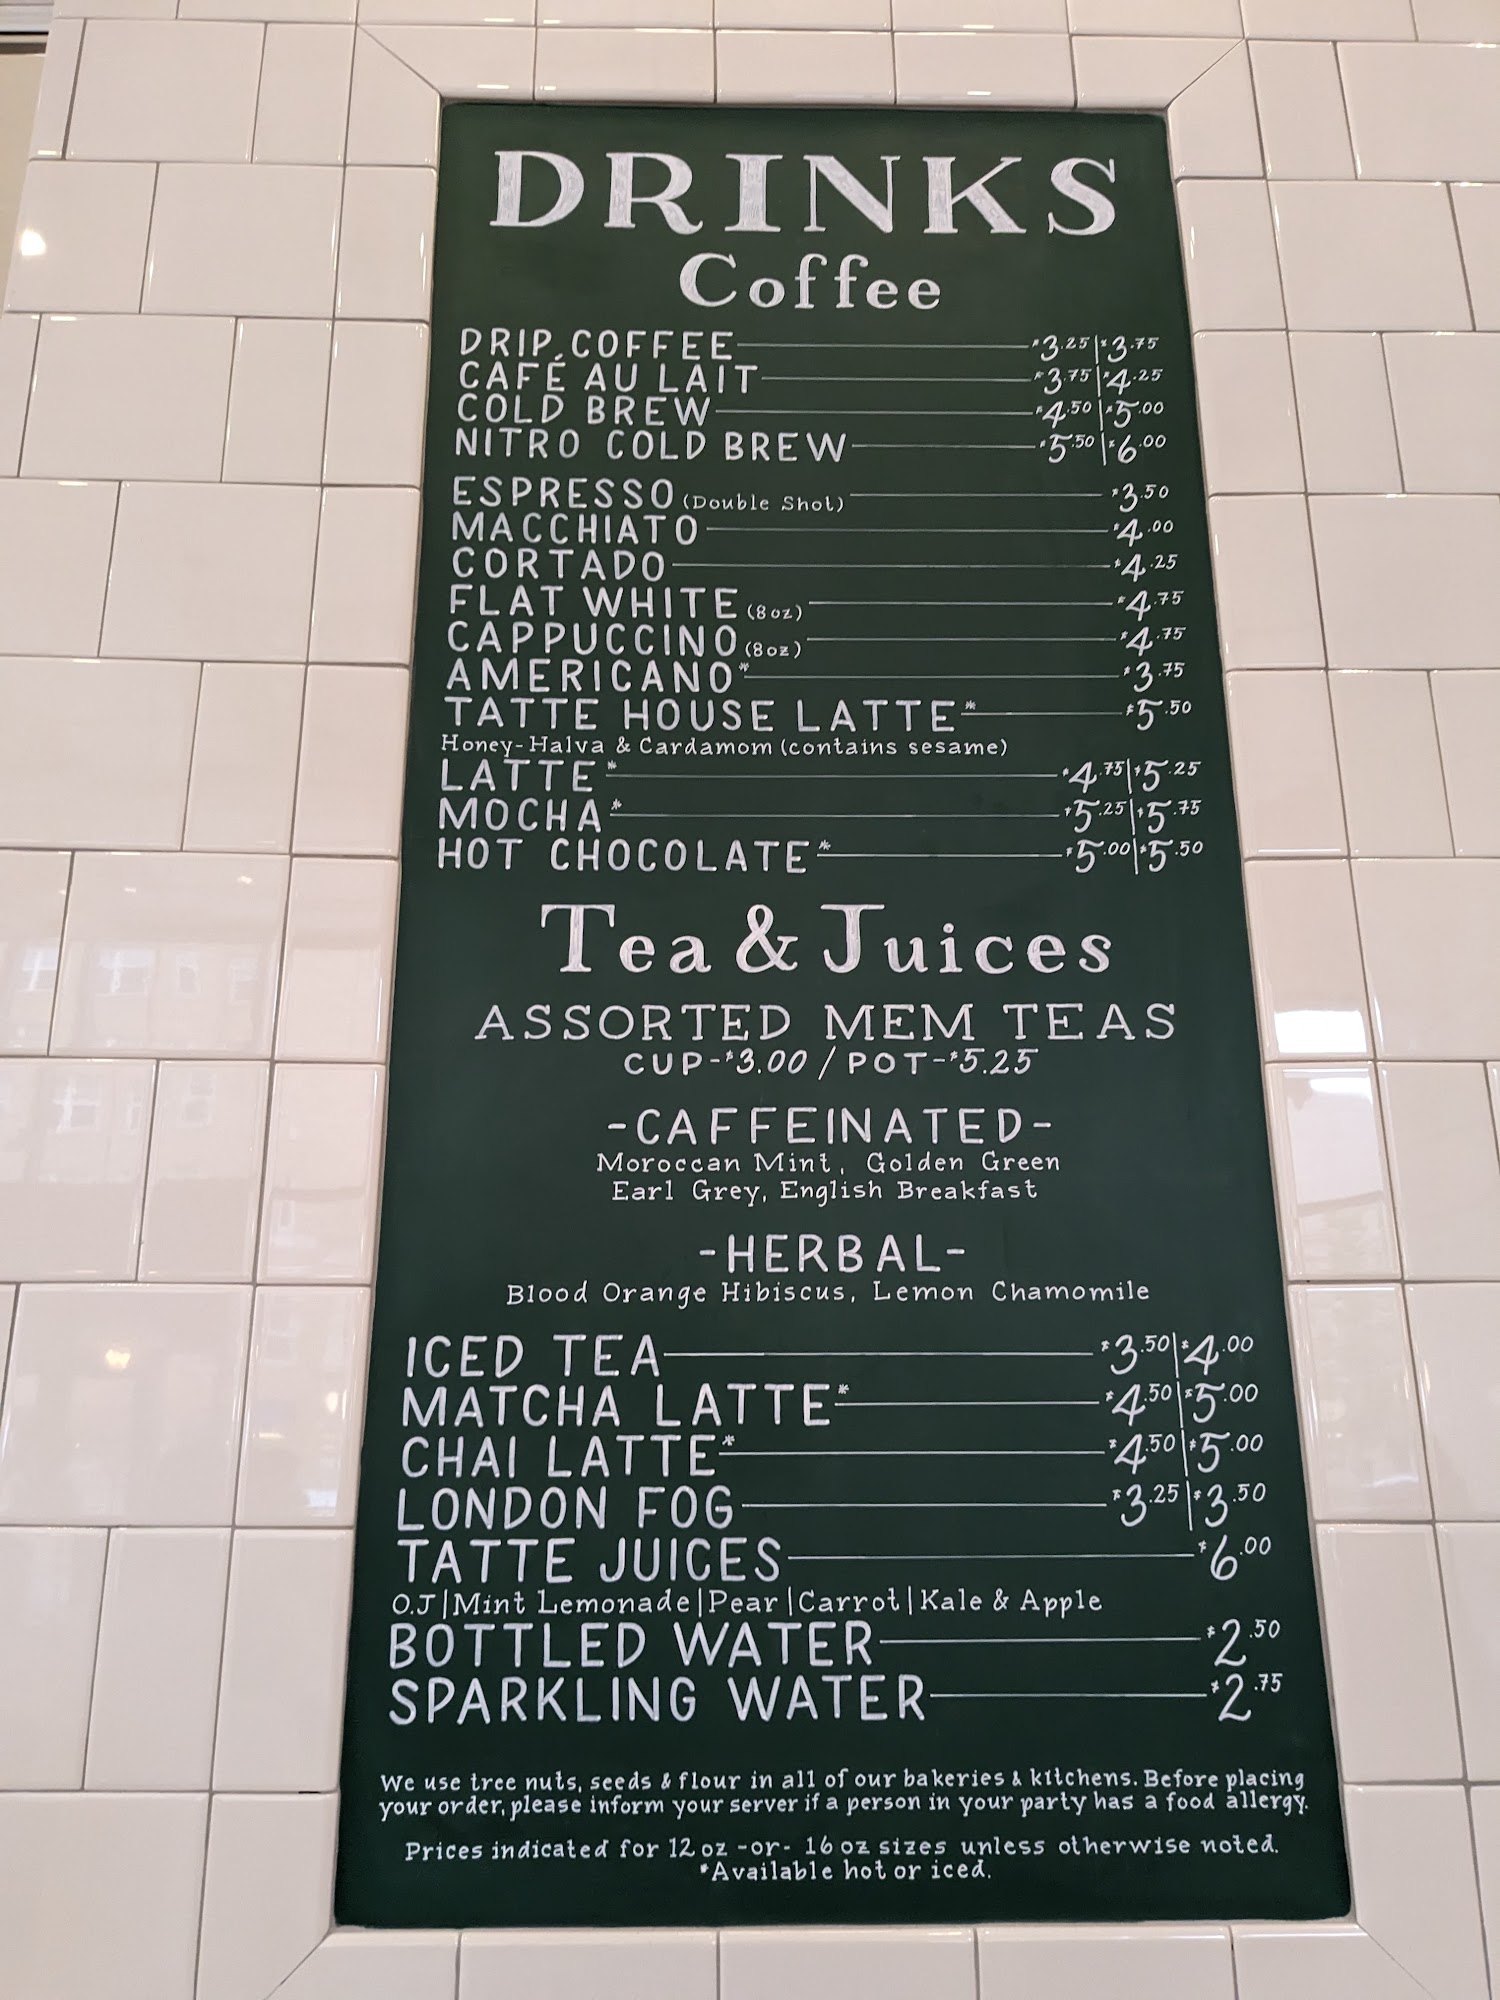 DRINKS
Coffee
DRIP COFFEE $3.25|$3.75
CAFÉ AU LAIT $3.75|$4.25
COLD BREW $4.50|$5.00
NITRO COLD BREW $5.50|$6.00
ESPRESSO (Double Shot) $3.50
MACCHIATO $4.00
CORTADO $4.25
FLAT WHITE (8oz) $4.75
CAPPUCCINO (8oz) $4.75
AMERICANO* $3.75
TATTE HOUSE LATTE* $5.50
Honey-Halva & Cardamom (contains sesame)
LATTE* $4.75|$5.25
MOCHA* $5.25|$5.75
HOT CHOCOLATE* $5.00|$5.50
Tea & Juices
ASSORTED MEM TEAS
CUP-$3.00 / POT-$5.25
-CAFFEINATED-
Moroccan Mint, Golden Green
Earl Grey, English Breakfast
-HERBAL-
Blood Orange Hibiscus, Lemon Chamomile
ICED TEA $3.50|$4.00
MATCHA LATTE* $4.50|$5.00
CHAI LATTE* $4.50|$5.00
LONDON FOG $3.25|$3.50
TATTE JUICES $6.00
O.J|Mint Lemonade|Pear|Carrot|Kale & Apple
BOTTLED WATER $2.50
SPARKLING WATER $2.75
We use tree nuts, seeds & flour in all of our bakeries & kitchens. Before placing
your order, please inform your server if a person in your party has a food allergy.
Prices indicated for 12 oz -or- 16 oz sizes unless otherwise noted.
*Available hot or iced.